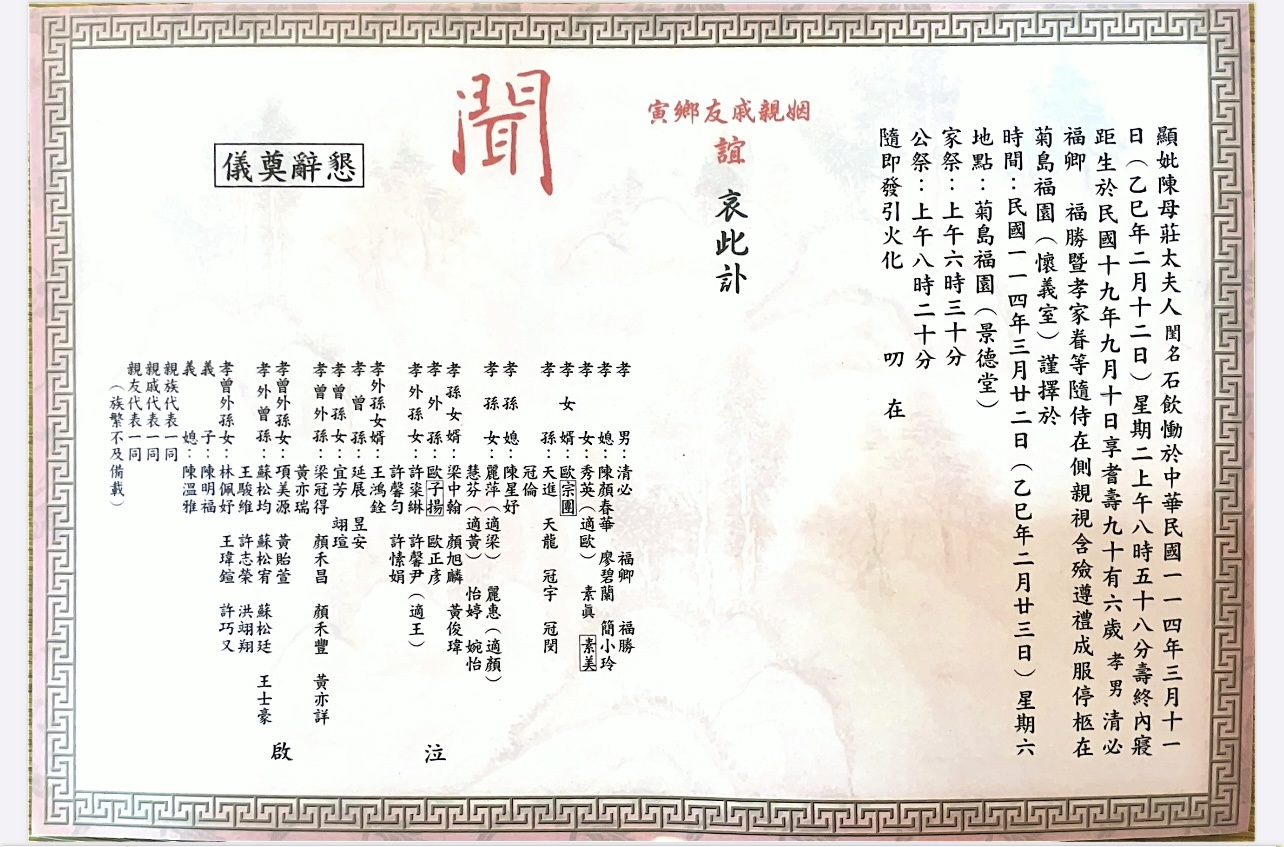 顯妣陳母莊太夫人閨名石飲慟於中華民國一一四年三月十一
日（乙巳年二月十二日）星期二上午八時五十八分壽終內寢
距生於民國十九年九月十日享耆壽九十有六歲 孝男 清必
福卿 福勝暨孝家眷等隨侍在側親視含殮遵禮成服停柩在
菊島福園（懷義室）謹擇於
時間：民國一一四年三月廿二日（乙巳年二月廿三日）星期六
地點：菊島福園（景德堂）
家祭：上午六時三十分
公祭：上午八時二十分
隨即發引火化 叨 在
姻親戚友鄉寅
誼
哀此訃
聞
孝男：清必 福卿 福勝
孝媳：陳顏春華 廖碧蘭 簡小玲
孝女：秀英（適歐） 素眞 素美
孝女婿：歐宗團
孝孫：天進 天龍 冠宇 冠閔
冠倫
孝孫媳：陳星妤
孝孫女：麗萍（適梁） 麗惠（適顏）
慧芬（適黃） 怡婷 婉怡
孝孫女婿：梁中翰 顏旭麟 黃俊瑋
孝外孫：歐子揚 歐正彦
孝外孫女：許棻綝 許馨尹（適王）
許馨勻 許愫娟
孝外孫女婿：王鴻銓
孝曾孫：延展 昱安
孝曾孫女：宜芳 翊瑄
孝曾外孫：梁冠得 顏禾昌 顏禾豐 黃亦詳
黃亦瑞
孝曾外孫女：項美源 黃貽萱
孝外曾孫：蘇松均 蘇松宥 蘇松廷 王士豪
王駿維 許志榮 洪翊翔
孝曾外孫女：林佩妤 王瑋鍹 許巧又
義子：陳明福
義媳：陳溫雅
親族代表一同
親戚代表一同
親友代表一同
（族繁不及備載）
泣
啟
懇辭奠儀